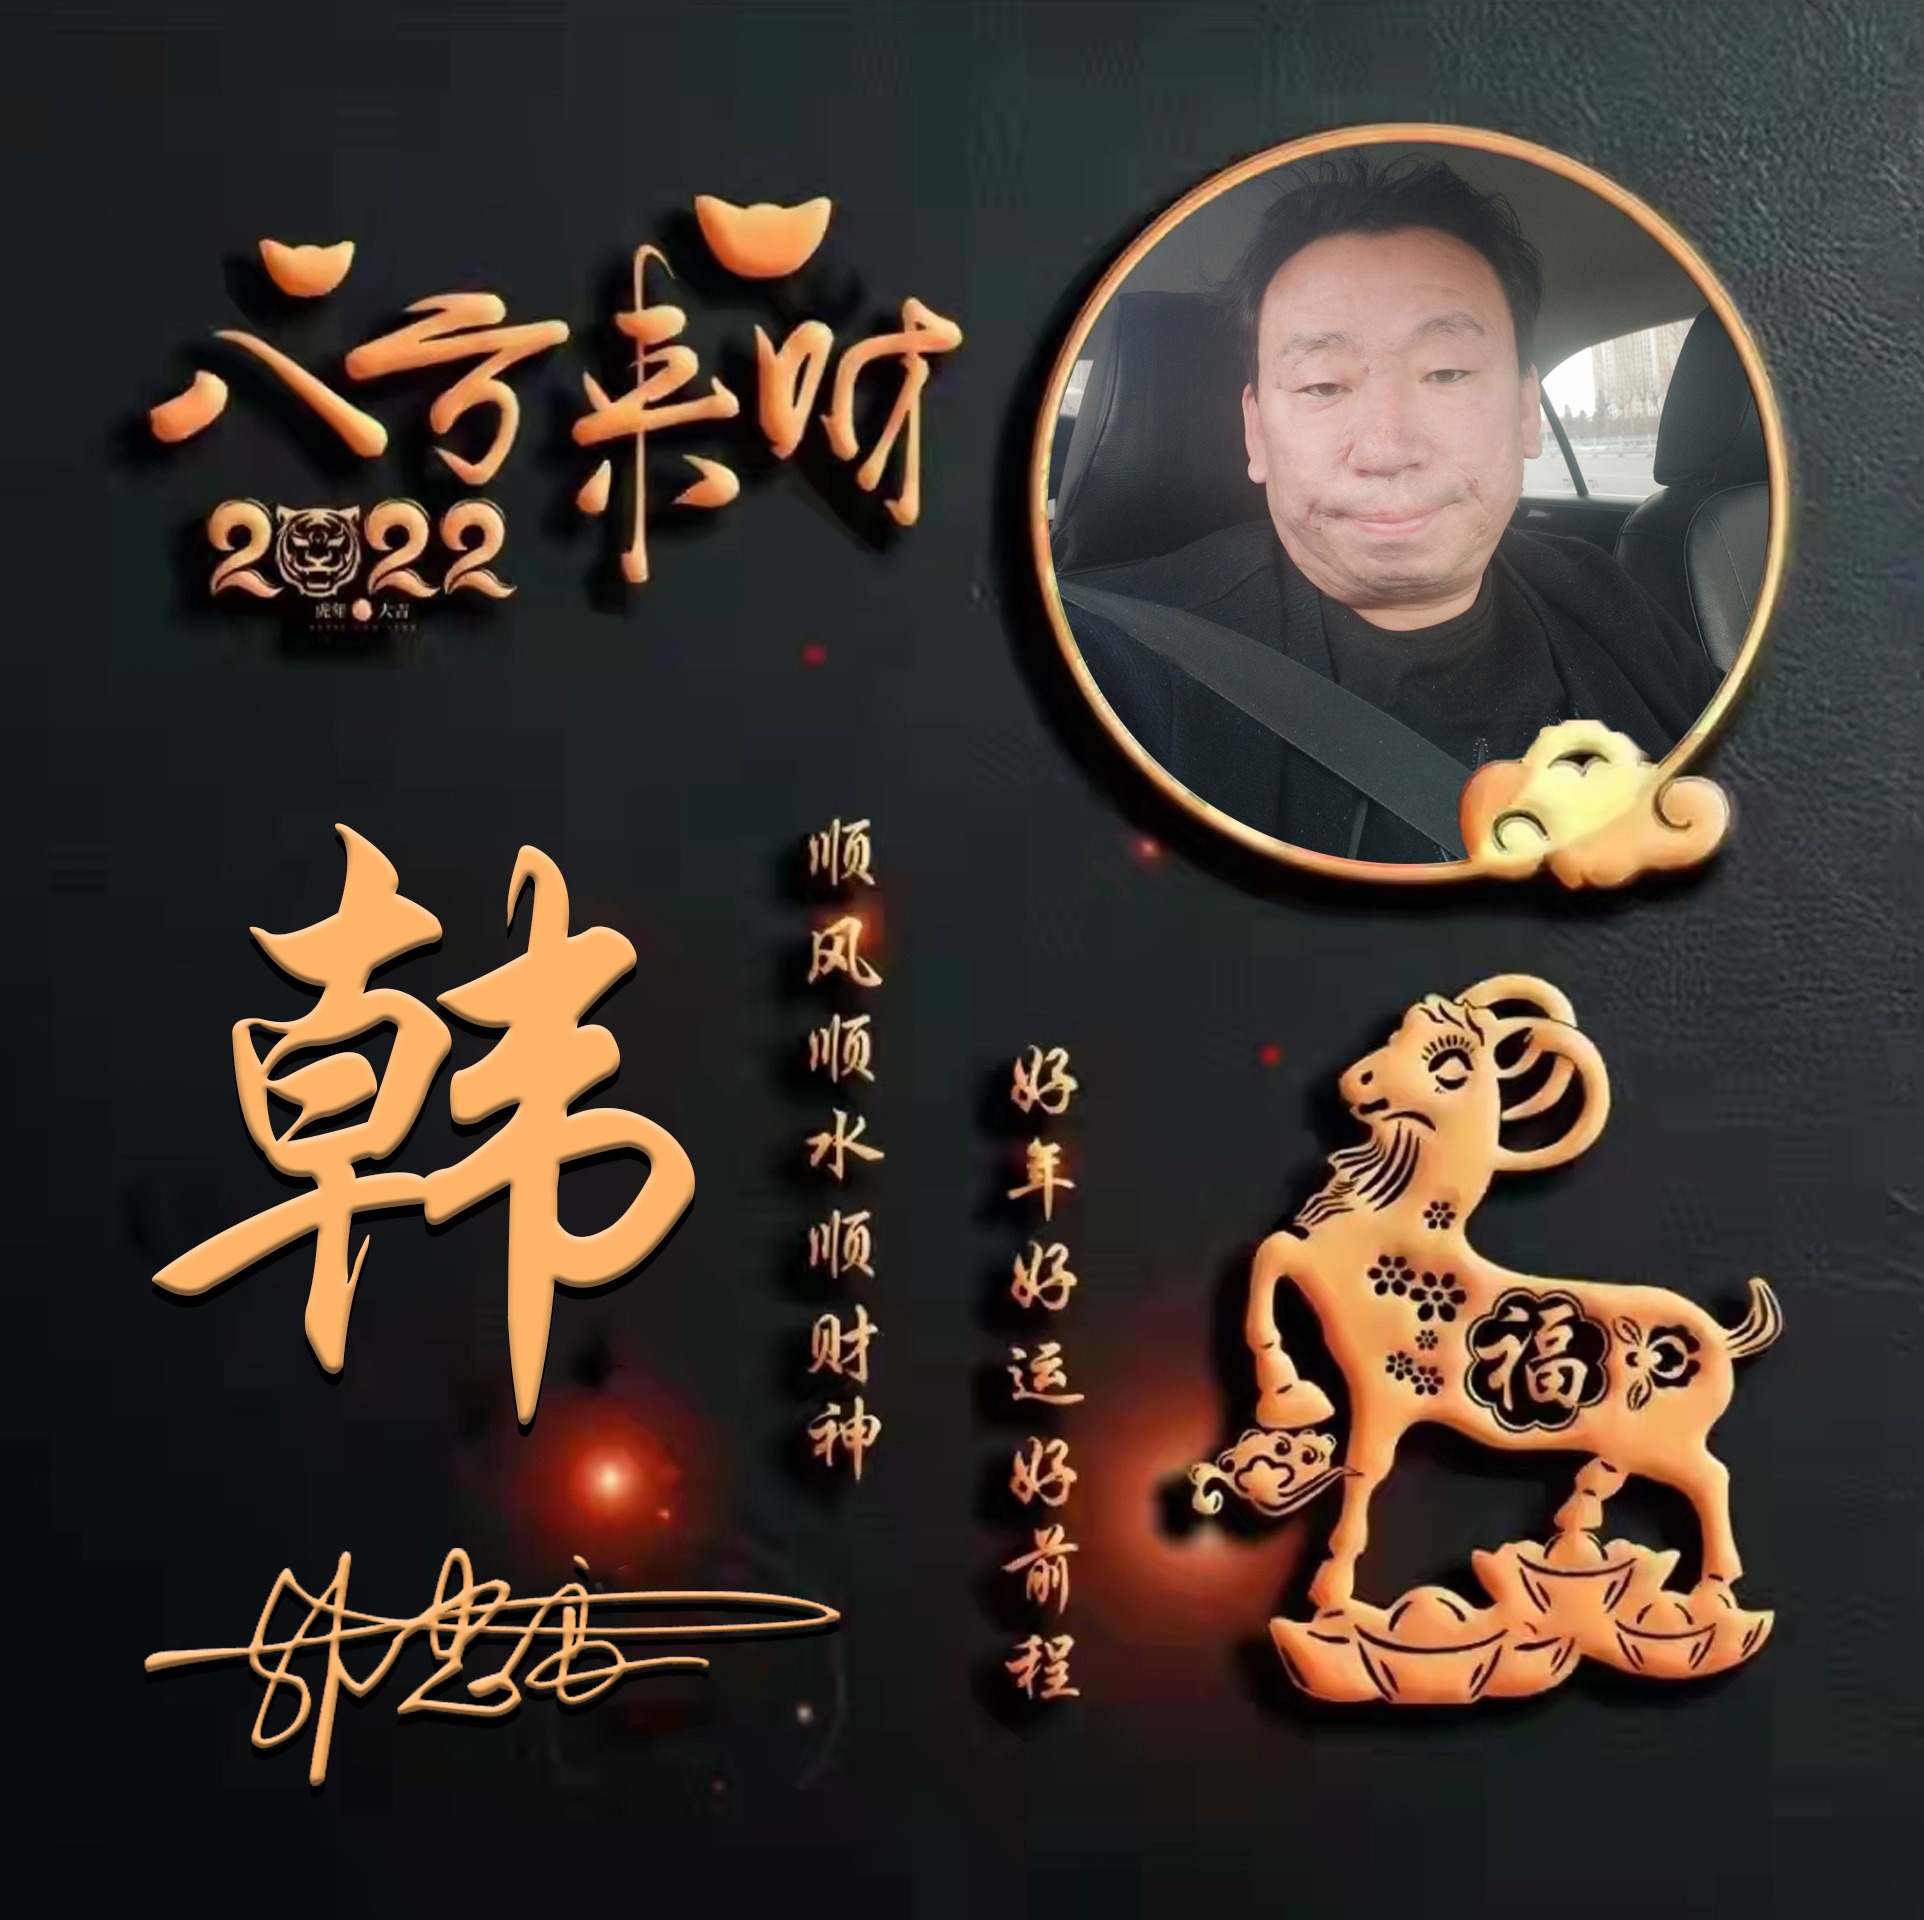 八方来财
2022
虎年 大吉
韩
顺风顺水顺财神
好年好运好前程
福